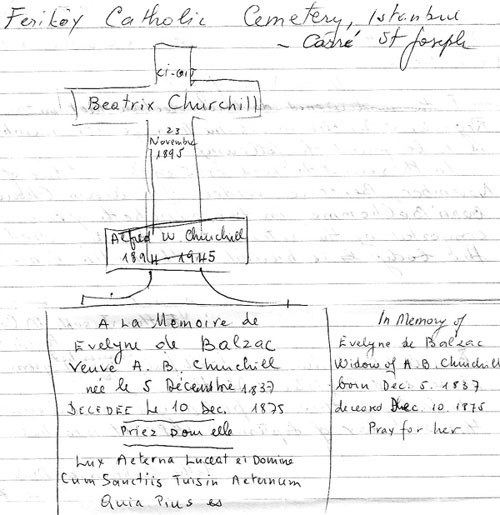 Feriköy Catholic Cemetery, Istanbul
- Carré St Joseph
Ci-Git
Beatrix Churchill
23
Novembre
1895
Alfred W. Churchill
1894-1945
A La Memoire de
Evelyne de Balzac
Veuve A. B. Churchill
née le 5 Décembre 1837
DECEDEE Le 10 Dec. 1875
Priez Pour elle
Lux Aeterna Luceat ei Domine
Cum Sanctiis Tuis in Aeternum
Quia Pius es
In Memory of
Evelyne de Balzac
Widow of A.B. Churchill
born Dec. 5. 1837
deceased Dec. 10. 1875
Pray for her.